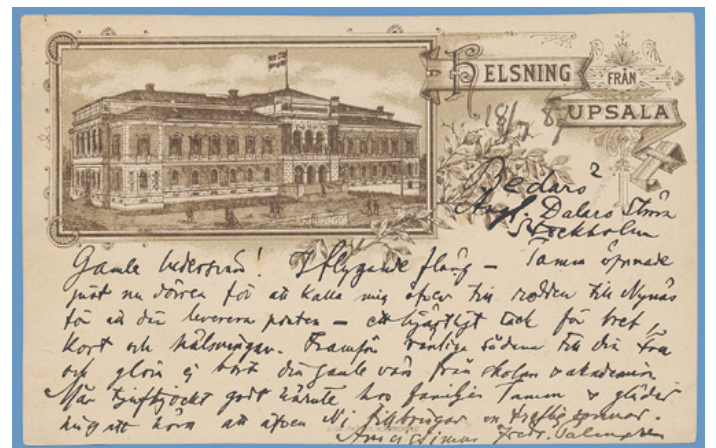 HELSNING
FRÅN
UPSALA
18/7 8
Dalarö Ström
Stockholm
Gamle hedersvän! I flygande fläng – Tamm öppnade
just nu dörren för att kalla mig öfver till redden till Nynäs
för att der leverera posten – ett hjärtligt tack för bref,
kort och hälsningar. Framför vänliga till din fru
och glöm ej bort din gamle vän från skolan & akademien
Mår tjufttjockt godt härute hos familjen Tamm & gläder
mig att höra att äfven Ni en treflig sommar.
Fredr.